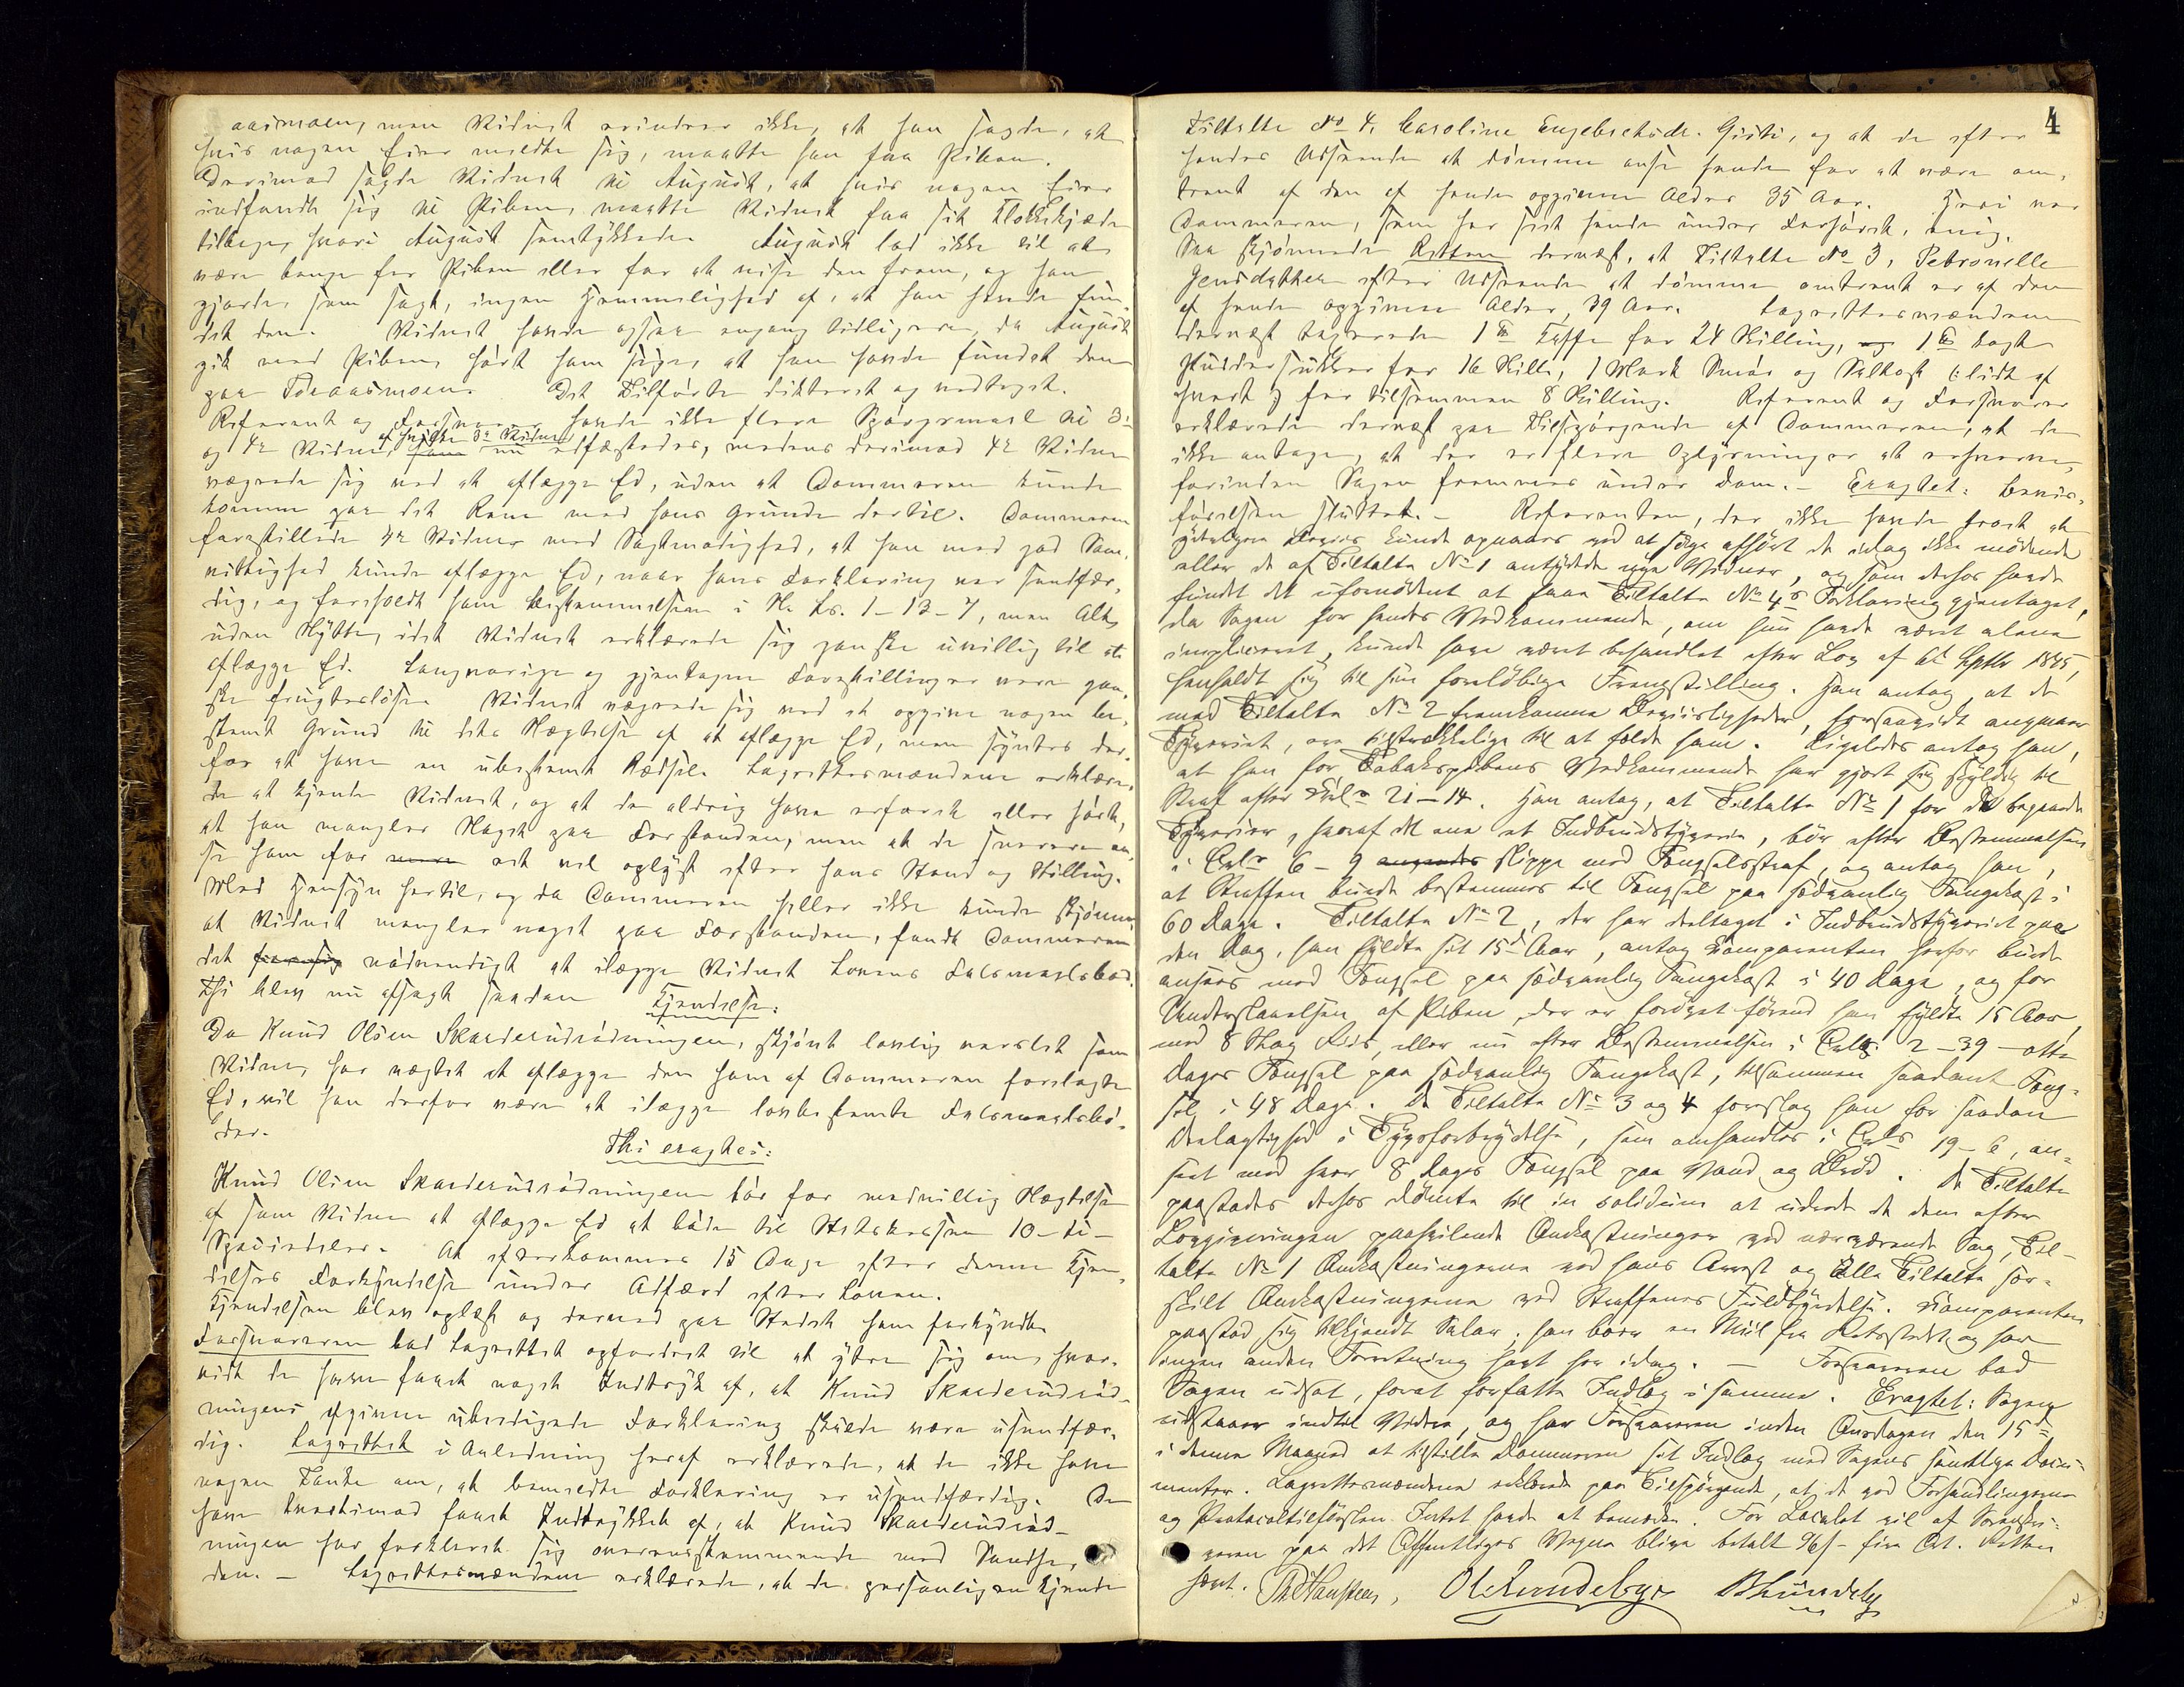 aasmoen, men Vidnet erindrer ikke, at han sagde, at
hvis nogen Eier meldte sig, maatte han faa Piben.
Derimod sagde Vidnet til August, at hvis nogen Eier
indfandt sig til Piben, maatte Vidnet faa sit Klokkekjæde
tilbage, hvori August samtykkede. August lod ikke til at
være bange for Piben eller for at vise den frem, og han
gjorde, som sagt, ingen Hemmelighed af, at han havde fun-
det den. Vidnet havde ogsaa engang tidligere, da August
gik med Piben, hørt ham sige, at han havde fundet den
paa Toraasmoen. Det Tilførte dikteret og vedtaget.
Referent og Forsvarer havde ikke flere Spørgsmaal til 3die
og 4de Vidne, af hvilke 3de Vidne nu edfæstedes, medens derimod 4de Vidne
vægrede sig ved at aflægge Ed, uden at Dommeren kunde
komme paa det Rene med hans Grunde dertil. Dommeren
forestillede 4de Vidne med Sagtmodighed, at han med god Sam-
vittighed kunde aflægge Ed, naar hans Forklaring var sandfær-
dig, og foreholdt ham Bestemmelsen i N. L. 1-13-7, men Alt
uden Nytte, idet Vidnet erklærede sig ganske uvillig til at
aflægge Ed. Langvarige og gjentagne Forestillinger vare gan-
ske frugtesløse. Vidnet vægrede sig ved at opgive nogen be-
stemt Grund til dets Nægtelse af at aflægge Ed, men syntes der-
for at have en ubestemt Rædsel. Lagrettesmændene erklære-
de at kjende Vidnet, og at de aldrig have erfaret eller hørt,
at han mangler Noget paa Forstanden, men at de snarere an-
se ham for ret vel oplyst efter hans Stand og Stilling.
Med Hensyn hertil, og da Dommeren heller ikke kunde skjønne,
at Vidnet mangler noget paa Forstanden, fandt Dommeren
det nødvendigt at ilægge Vidnet Lovens Falsmaalsbod.
Thi blev nu afsagt saadan Kjendelse:
Da Knud Olsen Skarderudrødningen, skjønt lovlig varslet som
Vidne, har nægtet at aflægge den ham af Dommeren forelagte
Ed, vil han derfor være at ilægge lovbestemte Falsmaalsbø-
der.
Thi eragtes:
Knud Olsen Skarderudrødningen bør for modvillig Nægtelse
af som Vidne at aflægge Ed at bøde til Statskassen 10 - ti -
Speciedaler. At efterkommes 15 Dage efter denne Kjen-
delses Forkyndelse under Adfærd efter Loven.
Kjendelsen blev oplæst og derved paa Stedet ham forkyndt.
Forsvareren bad Lagrettet opfordret til at ytre sig om, hvor-
vidt de have faaet noget Indtryk af, at Knud Skarderudrød-
ningens afgivne ubeedigede Forklaring skulde være usandfær-
dig. Lagrettet i Anledning heraf erklærede, at de ikke have
nogen Tanke om, at bemeldte Forklaring er usandfærdig. De
have tvertimod faaet Indtrykket af, at Knud Skarderudrød-
ningen har forklaret sig overensstemmende med Sandhe-
den. - Lagrettesmændene erklærede, at de personligen kjende
4
Tiltalte No 4, Caroline Engebretsdr. Gisti, og at de efter
hendes Udseende at dømme anse hende for at være om-
trent af den af hende opgivne Alder 35 Aar. Heri var
Dommeren, som har seet hende under Forhøret, enig.
Saa skjønnede Retten dernæst, at Tiltalte No 3, Petronelle
Jensdatter efter Udseende at dømme omtrent er af den
af hende opgivne Alder, 39 Aar. Lagrettesmændene
dernæst taxerede 1 ℔ Kaffe for 24 Skilling, 1 ℔ hugt
Puddersukker for 16 Skill., 1 Mark Smør og Valkost (: lidt af
hvert :) for tilsammen 8 Skilling. Referent og Forsvarer
erklærede dernæst paa Tilspørgende af Dommeren, at de
ikke antage, at der er flere Oplysninger at erhverve,
forinden Sagen fremmes under Dom. - Eragtet: Bevis-
førelsen sluttet. - Referenten, der ikke havde troet at
yderligere Beviis kunde opnaaes ved at søge afhørt de idag ikke mødende
eller de af Tiltalte No 1 antydede nye Vidner, og som derhos havde
fundet det ufornødent at faae Tiltalte No 4s Forklaring gjentaget,
da Sagen for hendes Vedkommende, om hun havde været alene
impliceret, kunde have været behandlet efter Lov af 6te Septbr 1845,
henholdt sig til sin foreløbige Fremstilling. Han antog, at de
mod Tiltalte No 2 fremkomne Beviisligheder, forsaavidt angaaer
Tyveriet, ere tilstrækkelige til at fælde ham. Ligeledes antog han,
at han for Tobakspibens Vedkommende har gjort sig skyldig til
Straf efter Crl. 21-14. Han antog, at Tiltalte No 1 for de begaaede
Tyverier, hvoraf det ene et Indbrudstyverie, bør efter Bestemmelsen
i Crl. 6-9 slippe med Fængselsstraf, og antog han,
at Straffen burde bestemmes til Fængsel paa sædvanlig Fangekost i
60 Dage. Tiltalte No 2, der har deltaget i Indbrudstyveriet paa
den Dag, han fyldte sit 15de Aar, antog Komparenten herfor burde
ansees med Fængsel paa sædvanlig Fangekost i 40 Dage, og for
Underslaaelsen af Piben, der er forøvet førend han fyldte 15 Aar,
med 8 Slag Riis, eller nu efter Bestemmelsen i Crl. 2-39 - otte
Dages Fængsel paa sædvanlig Fangekost, tilsammen saadant Fæng-
sel i 48 Dage. De Tiltalte No 3 og 4 foreslog han for saadan
Deelagtighed i Tyvsforbrydelse, som omhandles i Crl. 19-6, an-
seet med hver 8 Dages Fængsel paa Vand og Brød. De Tiltalte
paastodes derhos dømte til in solidum at udrede de dem efter
Lovgivningen paahvilende Omkostninger ved nærværende Sag, Til-
talte No 1 Omkostningerne ved hans Arrest og alle Tiltalte sær-
skilt Omkostningerne ved Straffens Fuldbyrdelse. Komparenten
paastod sig tilkjendt Salær; han boer en Miil fra Retsstedet og har
ingen anden Forretning havt her idag. - Forsvareren bad
Sagen udsat, forat forfatte Indlæg i samme. Eragtet: Sagen
udstaaer indtil Videre, og har Forsvareren inden Onsdagen den 15de
i denne Maaned at tilstille Dommeren sit Indlæg med Sagens samtlige Docu-
menter. Lagrettesmændene erklærede paa Tilspørgende, at de ved Forhandlingerne
og Protocoltilførslen Intet havde at bemærke. For Localet vil af Sorenskri-
veren paa det Offentliges Vegne blive betalt 96 s - fire Ort. Retten
hævet. Th Hansteen, OLundebye BLundeby